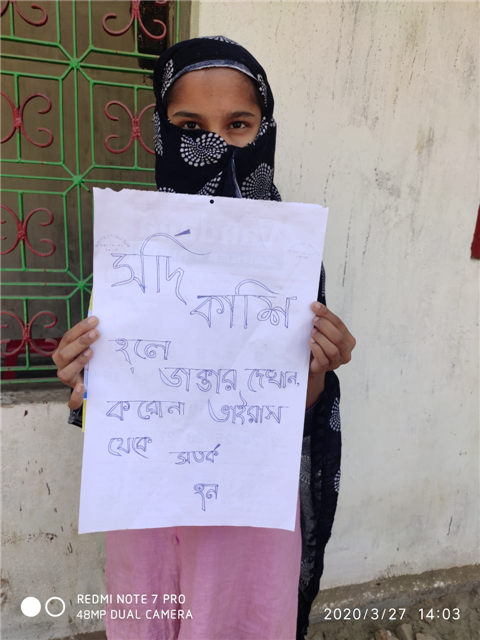 সর্দি
কাশি
হলে
ডাক্তার দেখান,
করোনা ভাইরাস
থেকে সতর্ক
হন
REDMI NOTE 7 PRO
48MP DUAL CAMERA
2020/3/27 14:03